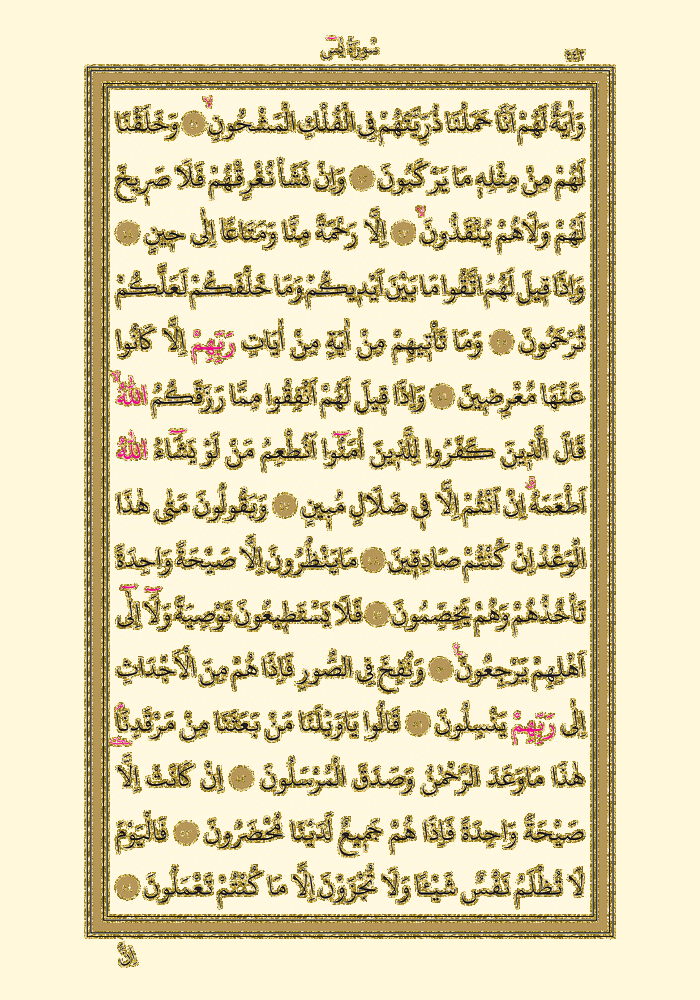 سُورَةُ يٰسٓ ٤٤٢
وَاٰيَةٌ لَهُمْ اَنَّا حَمَلْنَا ذُرِّيَّتَهُمْ فِي الْفُلْكِ الْمَشْحُونِۙ وَخَلَقْنَا
لَهُمْ مِنْ مِثْلِهٖ مَا يَرْكَبُونَ وَاِنْ نَشَأْ نُغْرِقْهُمْ فَلَا صَرِيخَ
لَهُمْ وَلَا هُمْ يُنْقَذُونَۙ اِلَّا رَحْمَةً مِنَّا وَمَتَاعًا اِلٰى حِينٍ
وَاِذَا قِيلَ لَهُمُ اتَّقُوا مَا بَيْنَ اَيْدِيكُمْ وَمَا خَلْفَكُمْ لَعَلَّكُمْ
تُرْحَمُونَ وَمَا تَأْتِيهِمْ مِنْ اٰيَةٍ مِنْ اٰيَاتِ رَبِّهِمْ اِلَّا كَانُوا
عَنْهَا مُعْرِضِينَ وَاِذَا قِيلَ لَهُمْ اَنْفِقُوا مِمَّا رَزَقَكُمُ اللّٰهُۙ
قَالَ الَّذِينَ كَفَرُوا لِلَّذِينَ اٰمَنُٓوا اَنُطْعِمُ مَنْ لَوْ يَشَٓاءُ اللّٰهُ
اَطْعَمَهُۗ اِنْ اَنْتُمْ اِلَّا فِي ضَلَالٍ مُبِينٍ وَيَقُولُونَ مَتٰى هٰذَا
الْوَعْدُ اِنْ كُنْتُمْ صَادِقِينَ مَا يَنْظُرُونَ اِلَّا صَيْحَةً وَاحِدَةً
تَأْخُذُهُمْ وَهُمْ يَخِصِّمُونَ فَلَا يَسْتَطِيعُونَ تَوْصِيَةً وَلَٓا اِلٰٓى
اَهْلِهِمْ يَرْجِعُونَ۟ وَنُفِخَ فِي الصُّورِ فَاِذَا هُمْ مِنَ الْاَجْدَاثِ
اِلٰى رَبِّهِمْ يَنْسِلُونَ قَالُوا يَا وَيْلَنَا مَنْ بَعَثَنَا مِنْ مَرْقَدِنَاۢ
هٰذَا مَا وَعَدَ الرَّحْمٰنُ وَصَدَقَ الْمُرْسَلُونَ اِنْ كَانَتْ اِلَّا
صَيْحَةً وَاحِدَةً فَاِذَا هُمْ جَمِيعٌ لَدَيْنَا مُحْضَرُونَ فَالْيَوْمَ
لَا تُظْلَمُ نَفْسٌ شَيْـًٔا وَلَا تُجْزَوْنَ اِلَّا مَا كُنْتُمْ تَعْمَلُونَ
اِنَّ